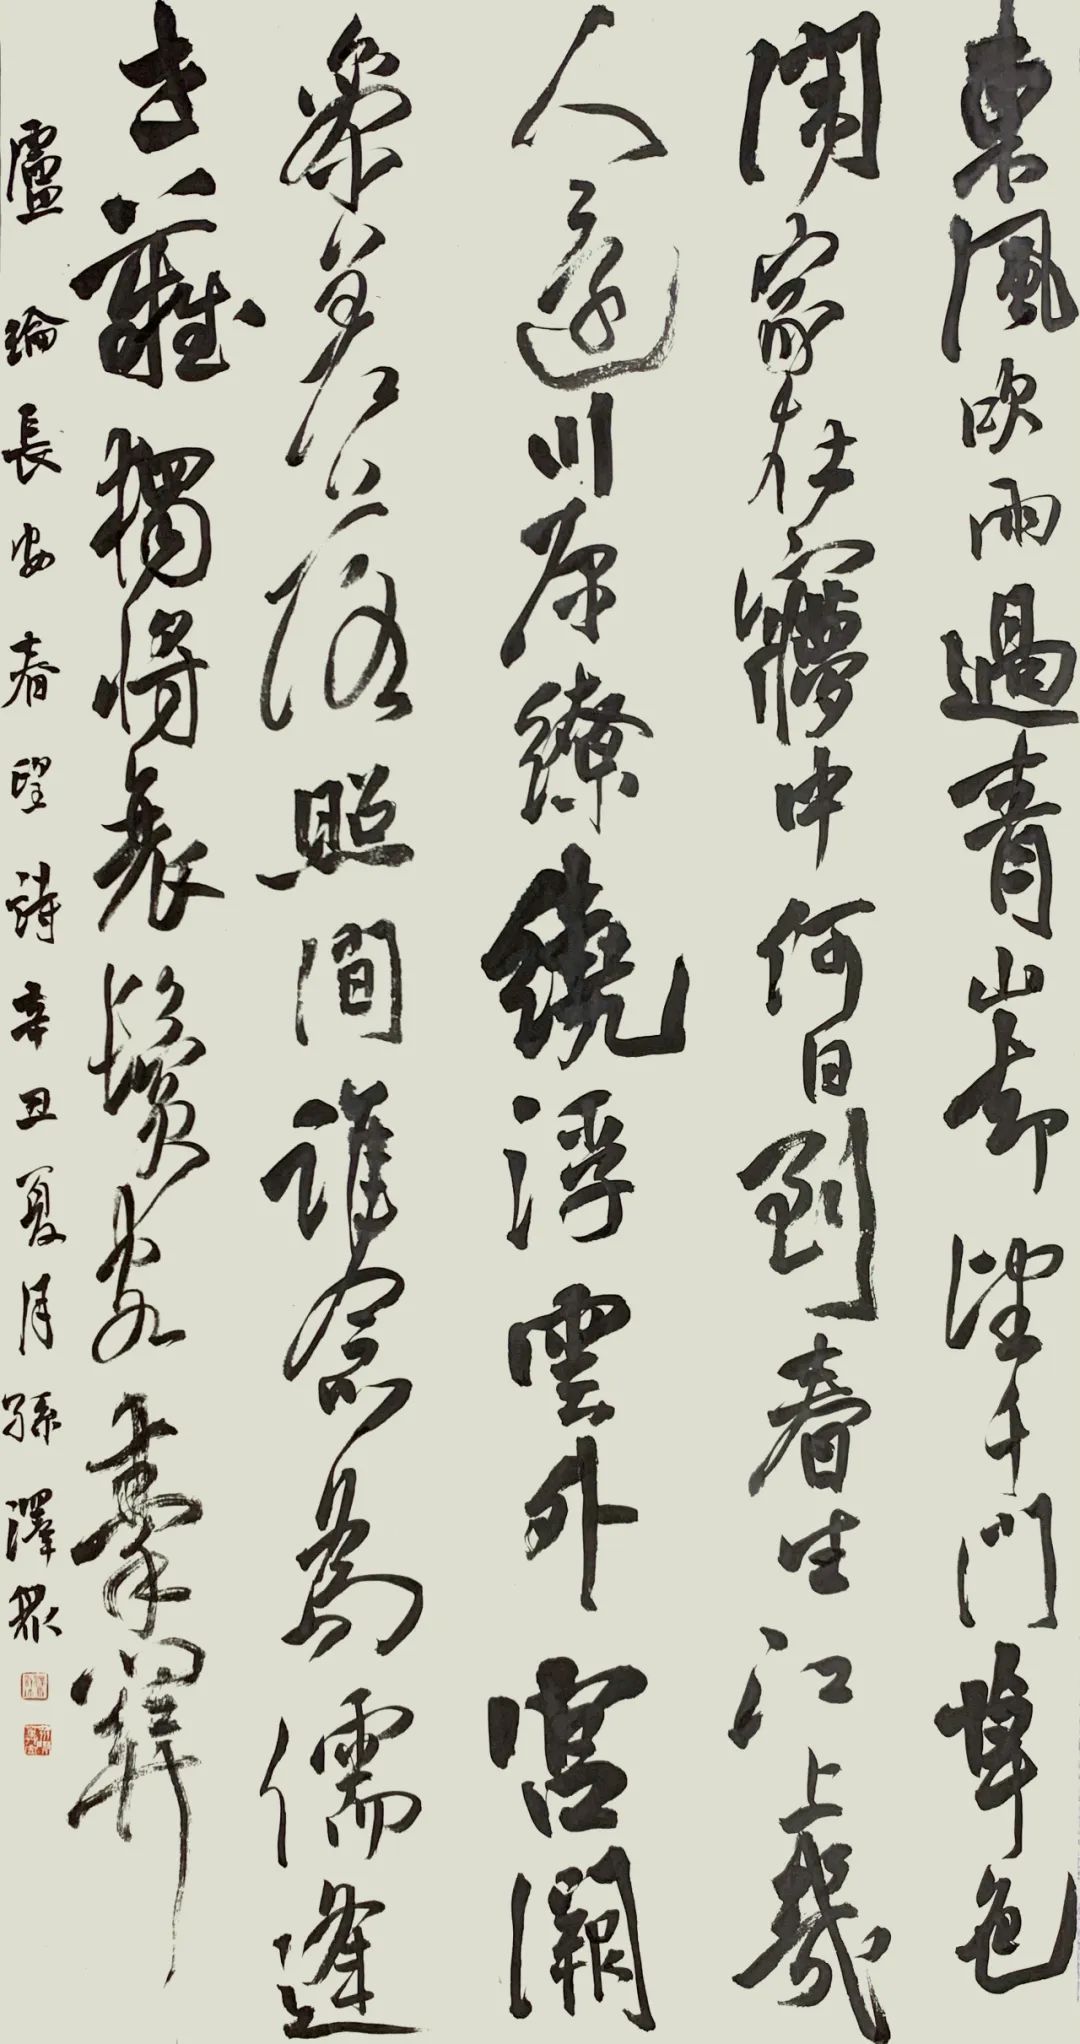 東風吹雨過青山却望千門草色
閑家在夢中何日到春生江上幾
人還川原繚繞浮雲外宮闕
參差落照間誰念為儒逢
世難獨將衰鬢客秦關
盧綸長安春望詩辛丑夏月孫澤眾